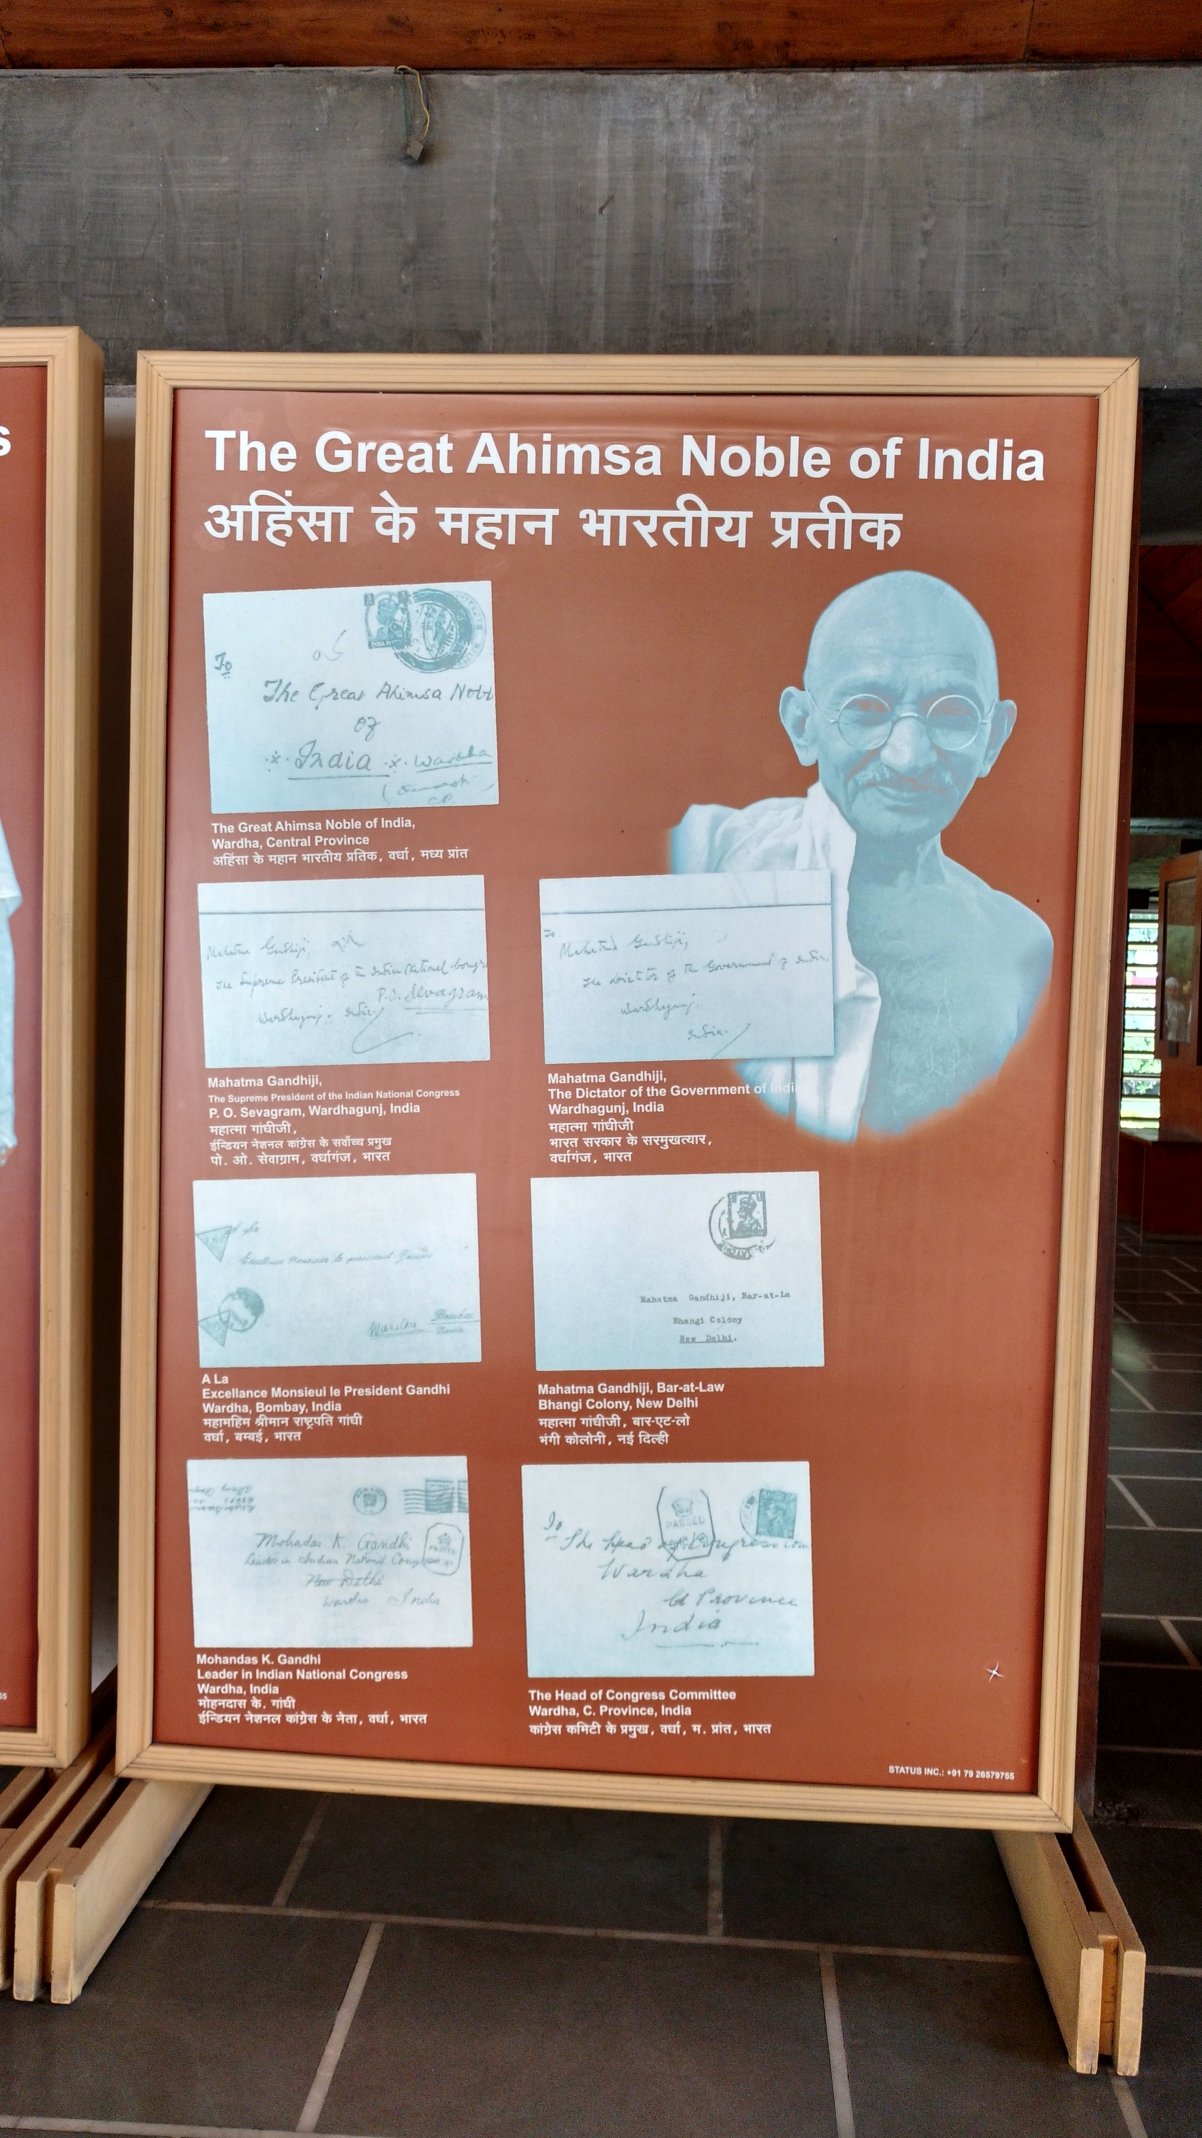 The Great Ahimsa Noble of India
अहिंसा के महान भारतीय प्रतीक
To
The Great Ahimsa Nobl
of
India Wardha
The Great Ahimsa Noble of India,
Wardha, Central Province
अहिंसा के महान भारतीय प्रतिक, वर्धा, मध्य प्रांत
Mahatma Gandhiji,
The Supreme President of the Indian National Congr
P.O. Sevagram
Wardhagunj. India.
Mahatma Gandhiji,
The Supreme President of the Indian National Congress
P. O. Sevagram, Wardhagunj, India
महात्मा गांधीजी,
ईन्डियन नेशनल कांग्रेस के सर्वोच्च प्रमुख
पो. ओ. सेवाग्राम, वर्धागंज, भारत
To
Mahatma Gandhiji,
The Dictator of the Government of India,
Wardhagunj
India.
Mahatma Gandhiji,
The Dictator of the Government of India
Wardhagunj, India
महात्मा गांधीजी
भारत सरकार के सरमुखत्यार,
वर्धागंज, भारत
A La
Excellance Monsieui le President Gandhi
Wardha, Bombay, India
महामहिम श्रीमान राष्ट्रपति गांधी
वर्धा, बम्बई, भारत
Mahatma Gandhiji, Bar-at-la
Bhangi Colony
New Delhi.
Mahatma Gandhiji, Bar-at-Law
Bhangi Colony, New Delhi
महात्मा गांधीजी, बार-एट-लो
भंगी कोलोनी, नई दिल्ही
Mohadas K. Gandhi
Leader in Indian National Congress
New Delhi
Wardha India
Mohandas K. Gandhi
Leader in Indian National Congress
Wardha, India
मोहनदास के. गांधी
ईन्डियन नेशनल कांग्रेस के नेता, वर्धा, भारत
PASSED
To
The Head of Congress Com
Wardha
C Province
India
The Head of Congress Committee
Wardha, C. Province, India
कांग्रेस कमिटी के प्रमुख, वर्धा, म. प्रांत, भारत
STATUS INC.: +91 79 26579755